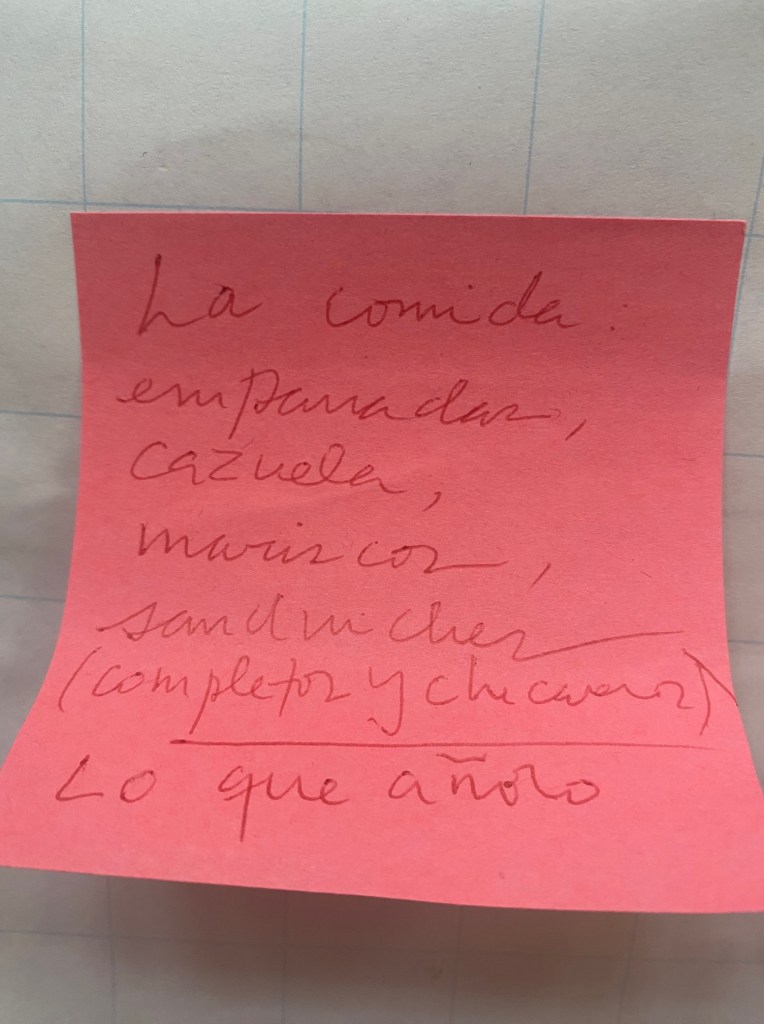 La comida:
empanadas,
cazuela,
mariscos,
sandwiches
(completos y chacareros)
Lo que añoro